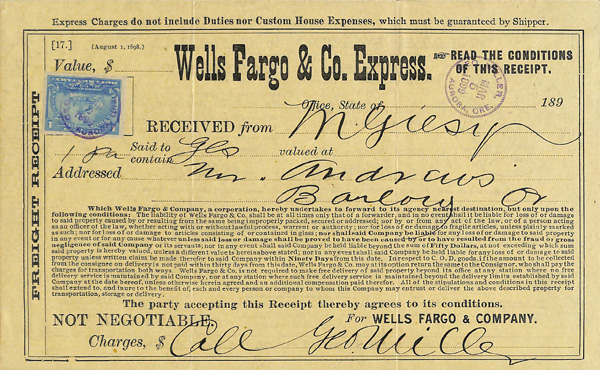 Express Charges do not include Duties nor Custom House Expenses, which must be guaranteed by Shipper.
[17.] (August 1, 1898.)
Value, $
Wells Fargo & Co. Express.
READ THE CONDITIONS
OF THIS RECEIPT.
AURORA, ORE.
MAR
Office, State of 189
RECEIVED from M Giesy
1 pa Said to contain Gls valued at
Addressed Mr. Andrews
Barlow Or
FREIGHT RECEIPT
Which Wells Fargo & Company, a corporation, hereby undertakes to forward to its agency nearest destination, but only upon the
following conditions: The liability of Wells Fargo & Co. shall be at all times only that of a forwarder, and in no event shall it be liable for loss or damage
to said property caused by or resulting from the same being improperly packed, secured or addressed; or by or from any act of the law, or of a person acting
as an officer of the law, whether acting with or without lawful process, warrant or authority; nor for loss of or damage to fragile articles, unless plainly marked
as such; nor for loss of or damage to articles consisting of or contained in glass; nor shall said Company be liable for any loss of or damage to said property
in any event or for any cause whatever unless said loss or damage shall be proved to have been caused by or to have resulted from the fraud or gross
negligence of said Company or its servants; nor in any event shall said Company be held liable beyond the sum of Fifty Dollars, at not exceeding which sum
said property is hereby valued, unless a different value is hereinabove stated; nor in any event shall said Company be liable for any loss of or damage to said
property unless written claim be made therefor to said Company within Ninety Days from this date. In respect to C. O. D. goods, if the amount to be collected
from the consignee on delivery is not paid within thirty days from this date, Wells Fargo & Co. may return the same to the Consignor, who shall pay the
charges for transportation both ways. Wells Fargo & Co. is not required to make free delivery of said property beyond its office at any station where no free
delivery service is maintained by said Company, nor at any station where such free delivery service is maintained beyond the delivery limits established by said
Company at the date hereof, unless otherwise herein agreed and an additional compensation paid therefor. All of the stipulations and conditions in this receipt
shall extend to, and inure to the benefit of, each and every person or company to whom this Company may entrust or deliver the above described property for
transportation, storage or delivery.
The party accepting this Receipt thereby agrees to its conditions.
NOT NEGOTIABLE. For WELLS FARGO & COMPANY.
Charges, $ Coll Geo Miller